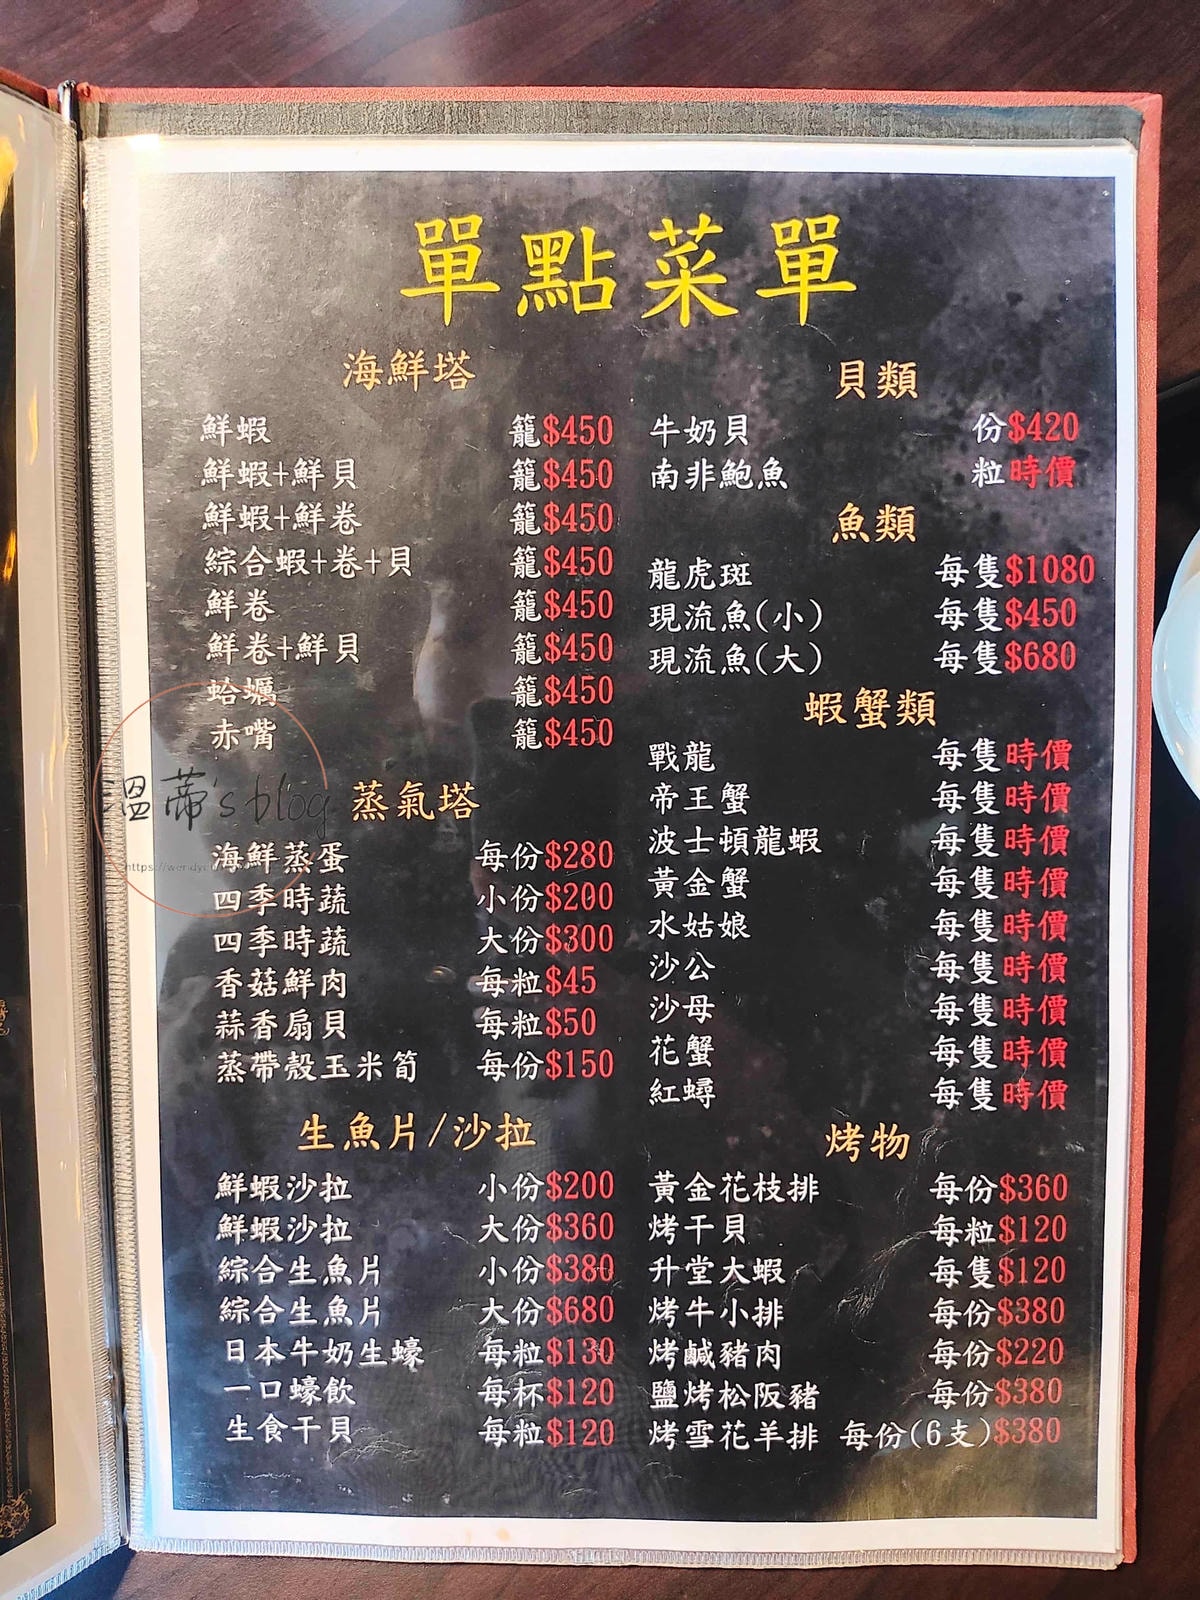 單點菜單
海鮮塔
鮮蝦 籠$450
鮮蝦+鮮貝 籠$450
鮮蝦+鮮卷 籠$450
綜合蝦+卷+貝 籠$450
鮮卷 籠$450
鮮卷+鮮貝 籠$450
蛤蠣 籠$450
赤嘴 籠$450
蒸氣塔
海鮮蒸蛋 每份$280
四季時蔬 小份$200
四季時蔬 大份$300
香菇鮮肉 每粒$45
蒜香扇貝 每粒$50
蒸帶殼玉米筍 每份$150
生魚片/沙拉
鮮蝦沙拉 小份$200
鮮蝦沙拉 大份$360
綜合生魚片 小份$380
綜合生魚片 大份$680
日本牛奶生蠔 每粒$130
一口蠔飲 每杯$120
生食干貝 每粒$120
貝類
牛奶貝 份$420
南非鮑魚 粒時價
魚類
龍虎斑 每隻$1080
現流魚(小) 每隻$450
現流魚(大) 每隻$680
蝦蟹類
戰龍 每隻時價
帝王蟹 每隻時價
波士頓龍蝦 每隻時價
黃金蟹 每隻時價
水姑娘 每隻時價
沙公 每隻時價
沙母 每隻時價
花蟹 每隻時價
紅蟳 每隻時價
烤物
黃金花枝排 每份$360
烤干貝 每粒$120
升堂大蝦 每隻$120
烤牛小排 每份$380
烤鹹豬肉 每份$220
鹽烤松阪豬 每份$380
烤雪花羊排 每份(6支)$380
溫蒂's blog